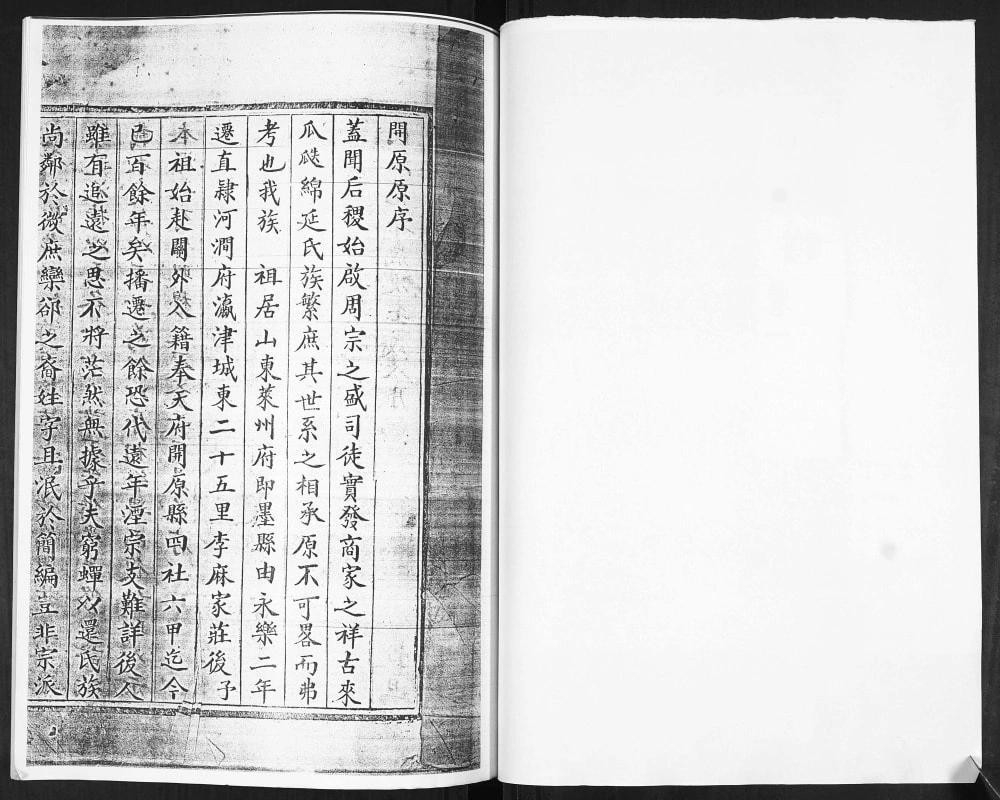 開原原序
蓋聞后稷始啟周宗之盛司徒實發商家之祥古來
瓜瓞綿延氏族繁庶其世系之相承原不可畧而弗
考也我族 祖居山東萊州府即墨縣由永樂二年
遷直隷河澗府瀛津城東二十五里李麻家莊後予
本祖始赴關外入籍奉天府開原縣 社六甲迄今
已百餘年矣播遷之餘恐代遠年湮宗支難詳後人
雖有追遠之思不將茫然無據乎夫窮蟬以還氏族
尚鄰於微庶欒郤之裔姓字且泯於簡編豈非宗派